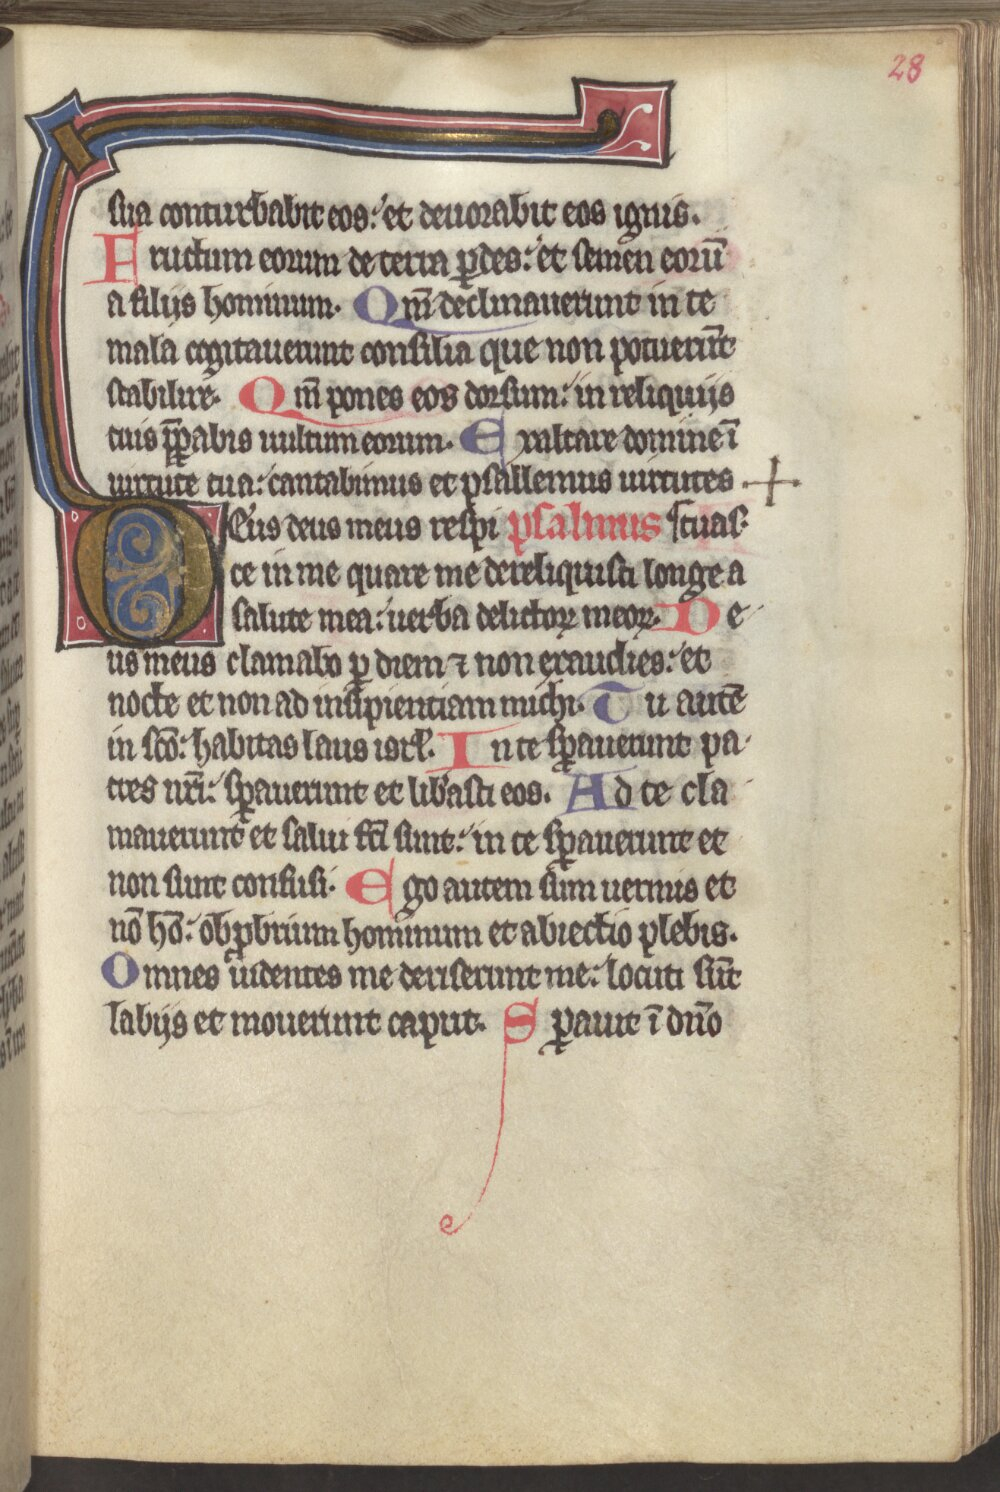 28
sua conturbabit eos: et deuorabit eos ignis.
Fructum eorum de terra ꝑdes: et semen eorū
a filijs hominum. Qm̄ declinauerunt in te
mala cogitauerunt consilia que non potuerūt
stabilire. Qm̄ pones eos dorsum: in reliquijs
tuis p̄ꝑabis uultum eorum. Exaltare domine ī
uirtute tua: cantabimus et psallemus uirtutes
Deus deus meus respi psalmus s tuas.
ce in me quare me dereliquisti longe a
salute mea: uerba delictoꝝ meoꝝ. De
us meus clamabo ꝑ diem ⁊ non exaudies: et
nocte et non ad insipientiam michi. Tu autē
in sc̄o: habitas laus isrl̄. In te sꝑauerunt pa
tres nr̄i: sꝑauerunt et lib̾asti eos. Ad te cla
mauerunt et salui fc̄i sunt: in te sꝑauerunt et
non sunt confusi. Ego autem sum uermis et
nō hō: obꝓbrium hominum et abiectio plebis.
Omnes uidentes me deriserunt me: locuti sūt
labijs et mouerunt caput. Sꝑauit ī dn̄o